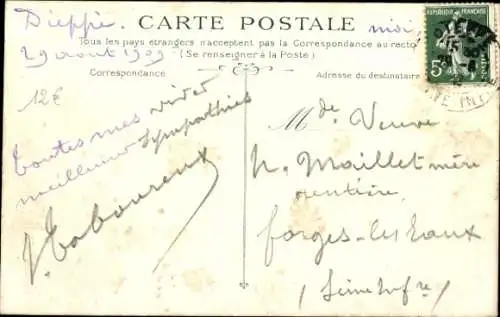 Dieppe.
29 août 1909
CARTE POSTALE
Tous les pays étrangers n'acceptent pas la Correspondance au recto
(Se renseigner à la Poste)
Correspondance
Adresse du destinataire
12€
Toutes mes
meilleures sympathies
J. Taboureux
Mde Veuve
N. Maillet mère
rentière
forges-les-Eaux
(Seine Infre)
5c